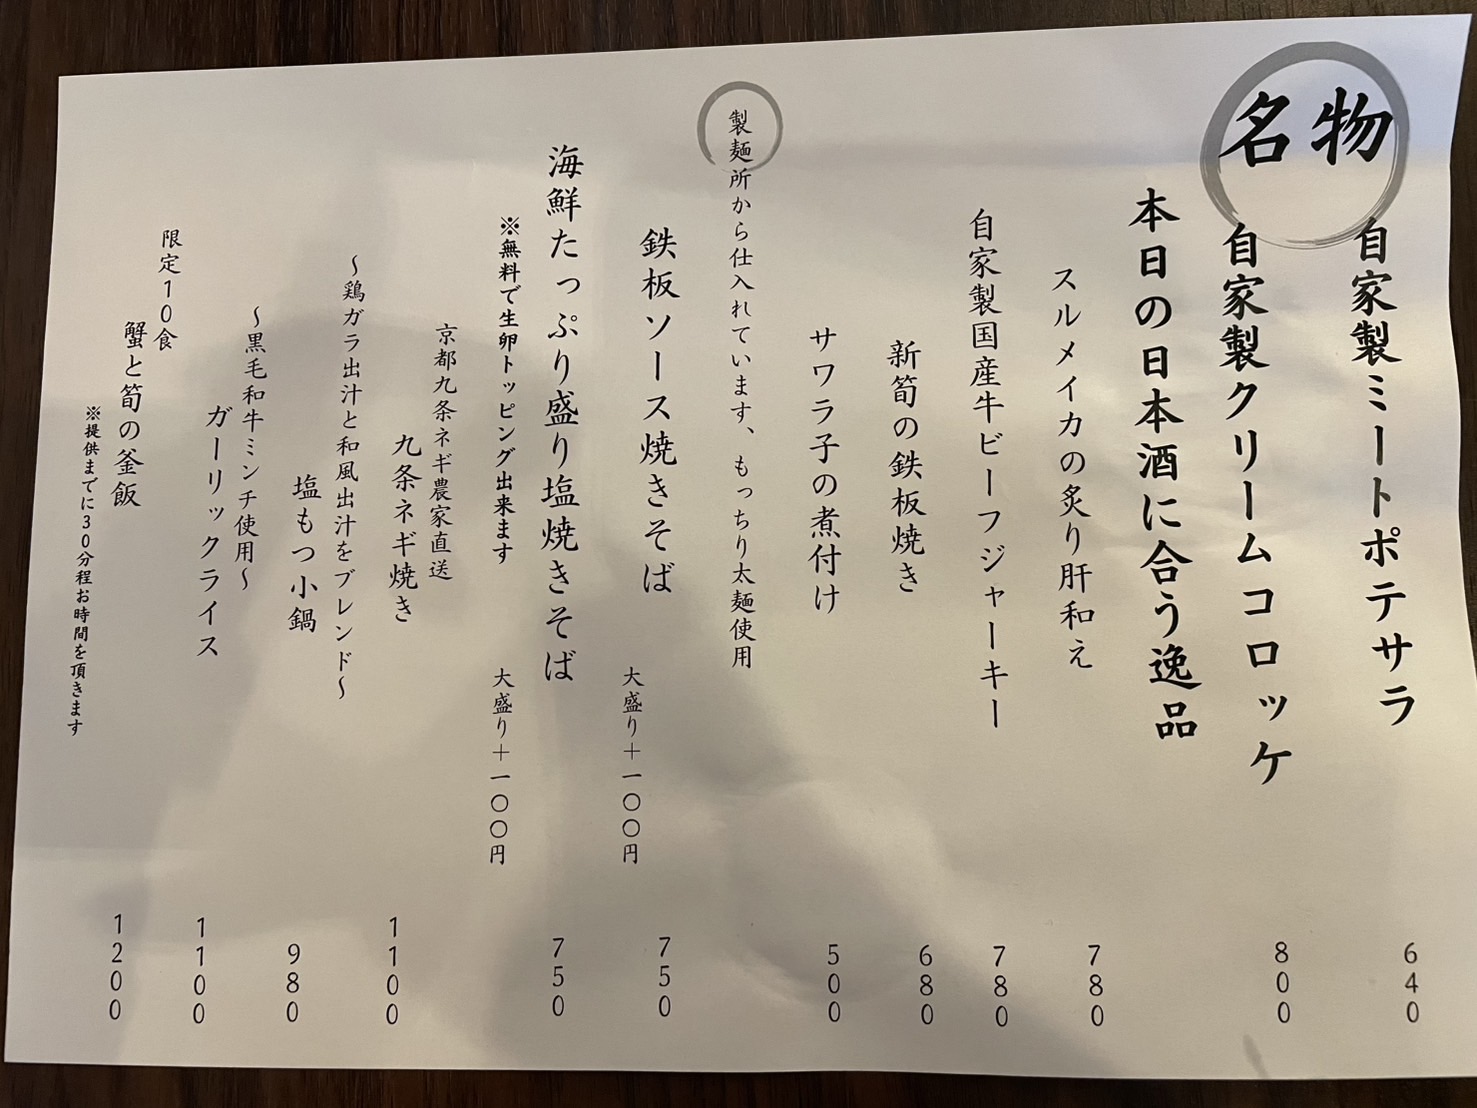 名物
自家製ミートポテサラ 640
自家製クリームコロッケ 800
本日の日本酒に合う逸品
スルメイカの炙り肝和え 780
自家製国産牛ビーフジャーキー 780
新筍の鉄板焼き 680
サワラ子の煮付け 500
製麺所から仕入れています、もっちり太麺使用
鉄板ソース焼きそば 750
大盛り＋一〇〇円
海鮮たっぷり盛り塩焼きそば 750
※無料で生卵トッピング出来ます
大盛り＋一〇〇円
京都九条ネギ農家直送
九条ネギ焼き 1100
～鶏ガラ出汁と和風出汁をブレンド～
塩もつ小鍋 980
～黒毛和牛ミンチ使用～
ガーリックライス 1100
限定10食
蟹と筍の釜飯 1200
※提供までに30分程お時間を頂きます